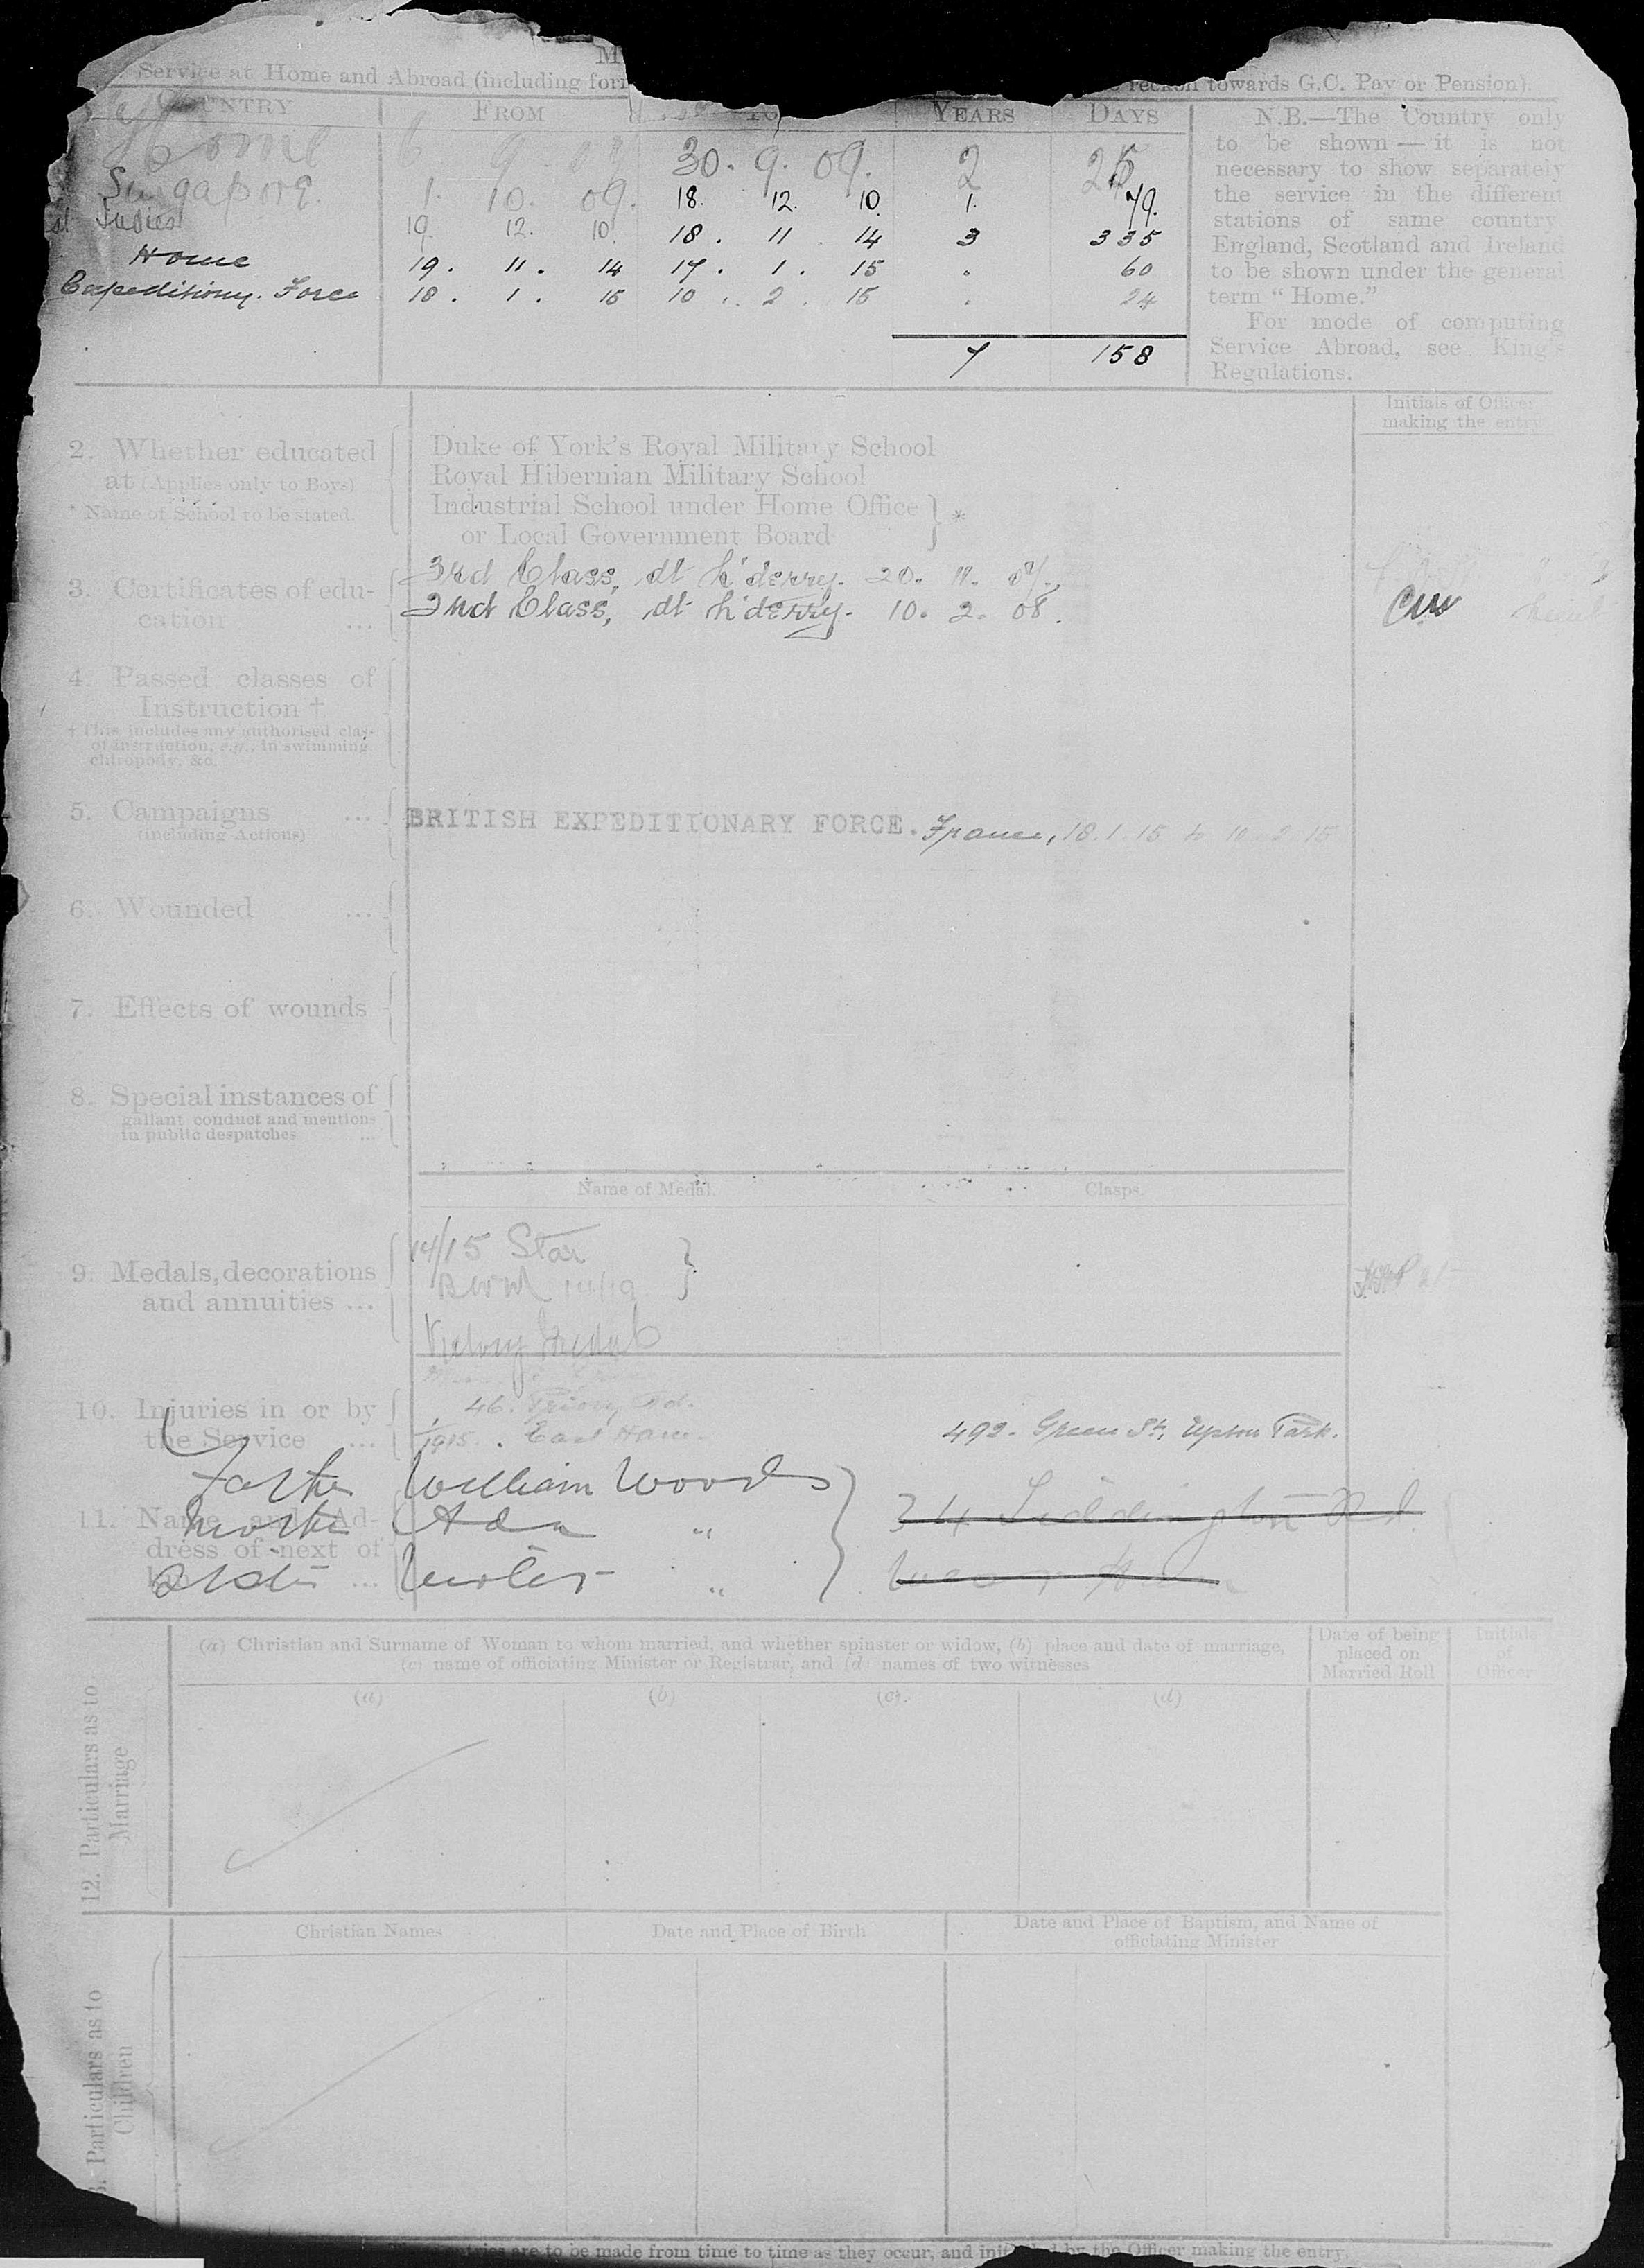 Service at Home and Abroad (including for
reckon towards G.C. Pay or Pension).
COUNTRY FROM TO YEARS DAYS
Home 6 9 07 30. 9. 09. 2 25
Singapore. 1. 10. 09. 18. 12. 10. 1. 79.
st Indies 19. 12. 10. 18. 11. 14 3 335
Home 19. 11. 14 17. 1. 15 . 60
Expeditiony. Force 18. 1. 15 10. 2. 15 . 24
7 158
N.B.—The Country only
to be shown—it is not
necessary to show separately
the service in the different
stations of same country
England, Scotland and Ireland
to be shown under the general
term "Home."
For mode of computing
Service Abroad, see King's
Regulations.
Initials of Officer
making the entry
2. Whether educated
at (Applies only to Boys)
* Name of School to be stated.
Duke of York's Royal Military School
Royal Hibernian Military School
Industrial School under Home Office
or Local Government Board } *
3. Certificates of edu-
cation ...
3rd Class, dt L'derry. 20. 11. 07.
2nd Class, dt L'derry. 10. 2. 08.
4. Passed classes of
Instruction †
† This includes any authorised class
of instruction, e.g., in swimming
chiropody, &c.
5. Campaigns ...
(including Actions)
BRITISH EXPEDITIONARY FORCE. France, 18.1.15 to 10.2.15
6. Wounded ...
7. Effects of wounds
8. Special instances of
gallant conduct and mention
in public despatches ...
Name of Medal. Clasps.
9. Medals, decorations
and annuities ...
14/15 Star
BWM 14/19 }
Victory Medal
10. Injuries in or by
the Service ...
46. Priory Rd.
1915. East Ham.
492. Green St, Upton Park.
11. Name and Ad-
dress of next of
kin ...
Father William Woods
Mother Ada "
Sister "
34 Liddington Rd.
(a) Christian and Surname of Woman to whom married, and whether spinster or widow, (b) place and date of marriage,
(c) name of officiating Minister or Registrar, and (d) names of two witnesses
Date of being
placed on
Married Roll
Initials
of
Officer
(a) (b) (c) (d)
12. Particulars as to
Marriage
Christian Names Date and Place of Birth Date and Place of Baptism, and Name of
officiating Minister
Particulars as to
Children
entries are to be made from time to time as they occur, and initialled by the Officer making the entry.